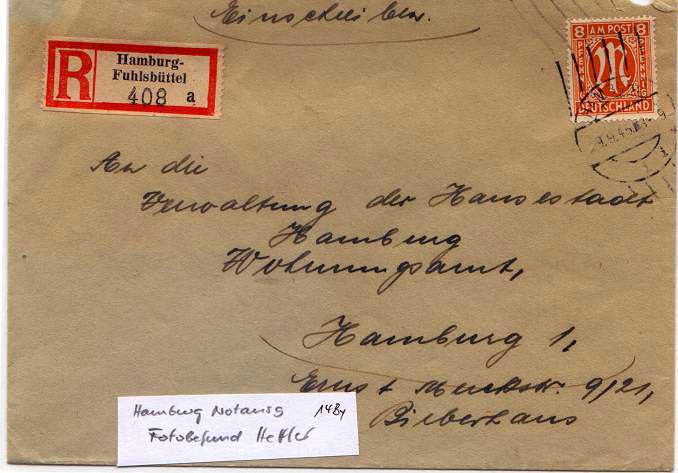 Einschreiben.
R
Hamburg-
Fuhlsbüttel
408 a
8 AM POST 8
PFENNIG PFENNIG
DEUTSCHLAND
An die
Verwaltung der Hansestadt
Hamburg
Wohnungsamt,
Hamburg 1,
Ernst Merckstr. 9/21,
Bieberhaus
Hamburg Notausg 14By
Fotobefund Hettler